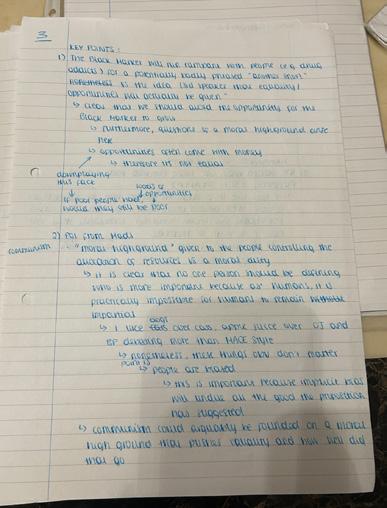 3
KEY POINTS:
1) The Black Market will run rampant with people (e.g drug
addicts) for a potentially badly phrased
is the idea (1st speaker that equality/
opportunities will actually be given"
↳ clear that we should avoid the opportunity for the
Black Market to grow
↳ furthermore, questions of a moral highground arise
here
↳ opportunities often come with money
↳ therefore it's not equal
downplaying
this fact
loads of
↓ opportunities
if poor people had,
would they still be poor
2) POI from Madi
communism
↳ "moral highground" given to the people controlling the
allocation of resources is a moral duty
↳ it is clear that no one person should be defining
who is more important because as humans, it is
practically impossible for humans to remain
impartial
dogs
↳ I like over cats, apple juice over OJ and
BP debating more than MACE style
↳ nonetheless, these things don't matter
point is
↳ people are biased
↳ this is important because implicit bias
will undue all the good the proposition
has suggested
↳ communism could arguably be founded on a moral
high ground that pushes equality and how well did
that go